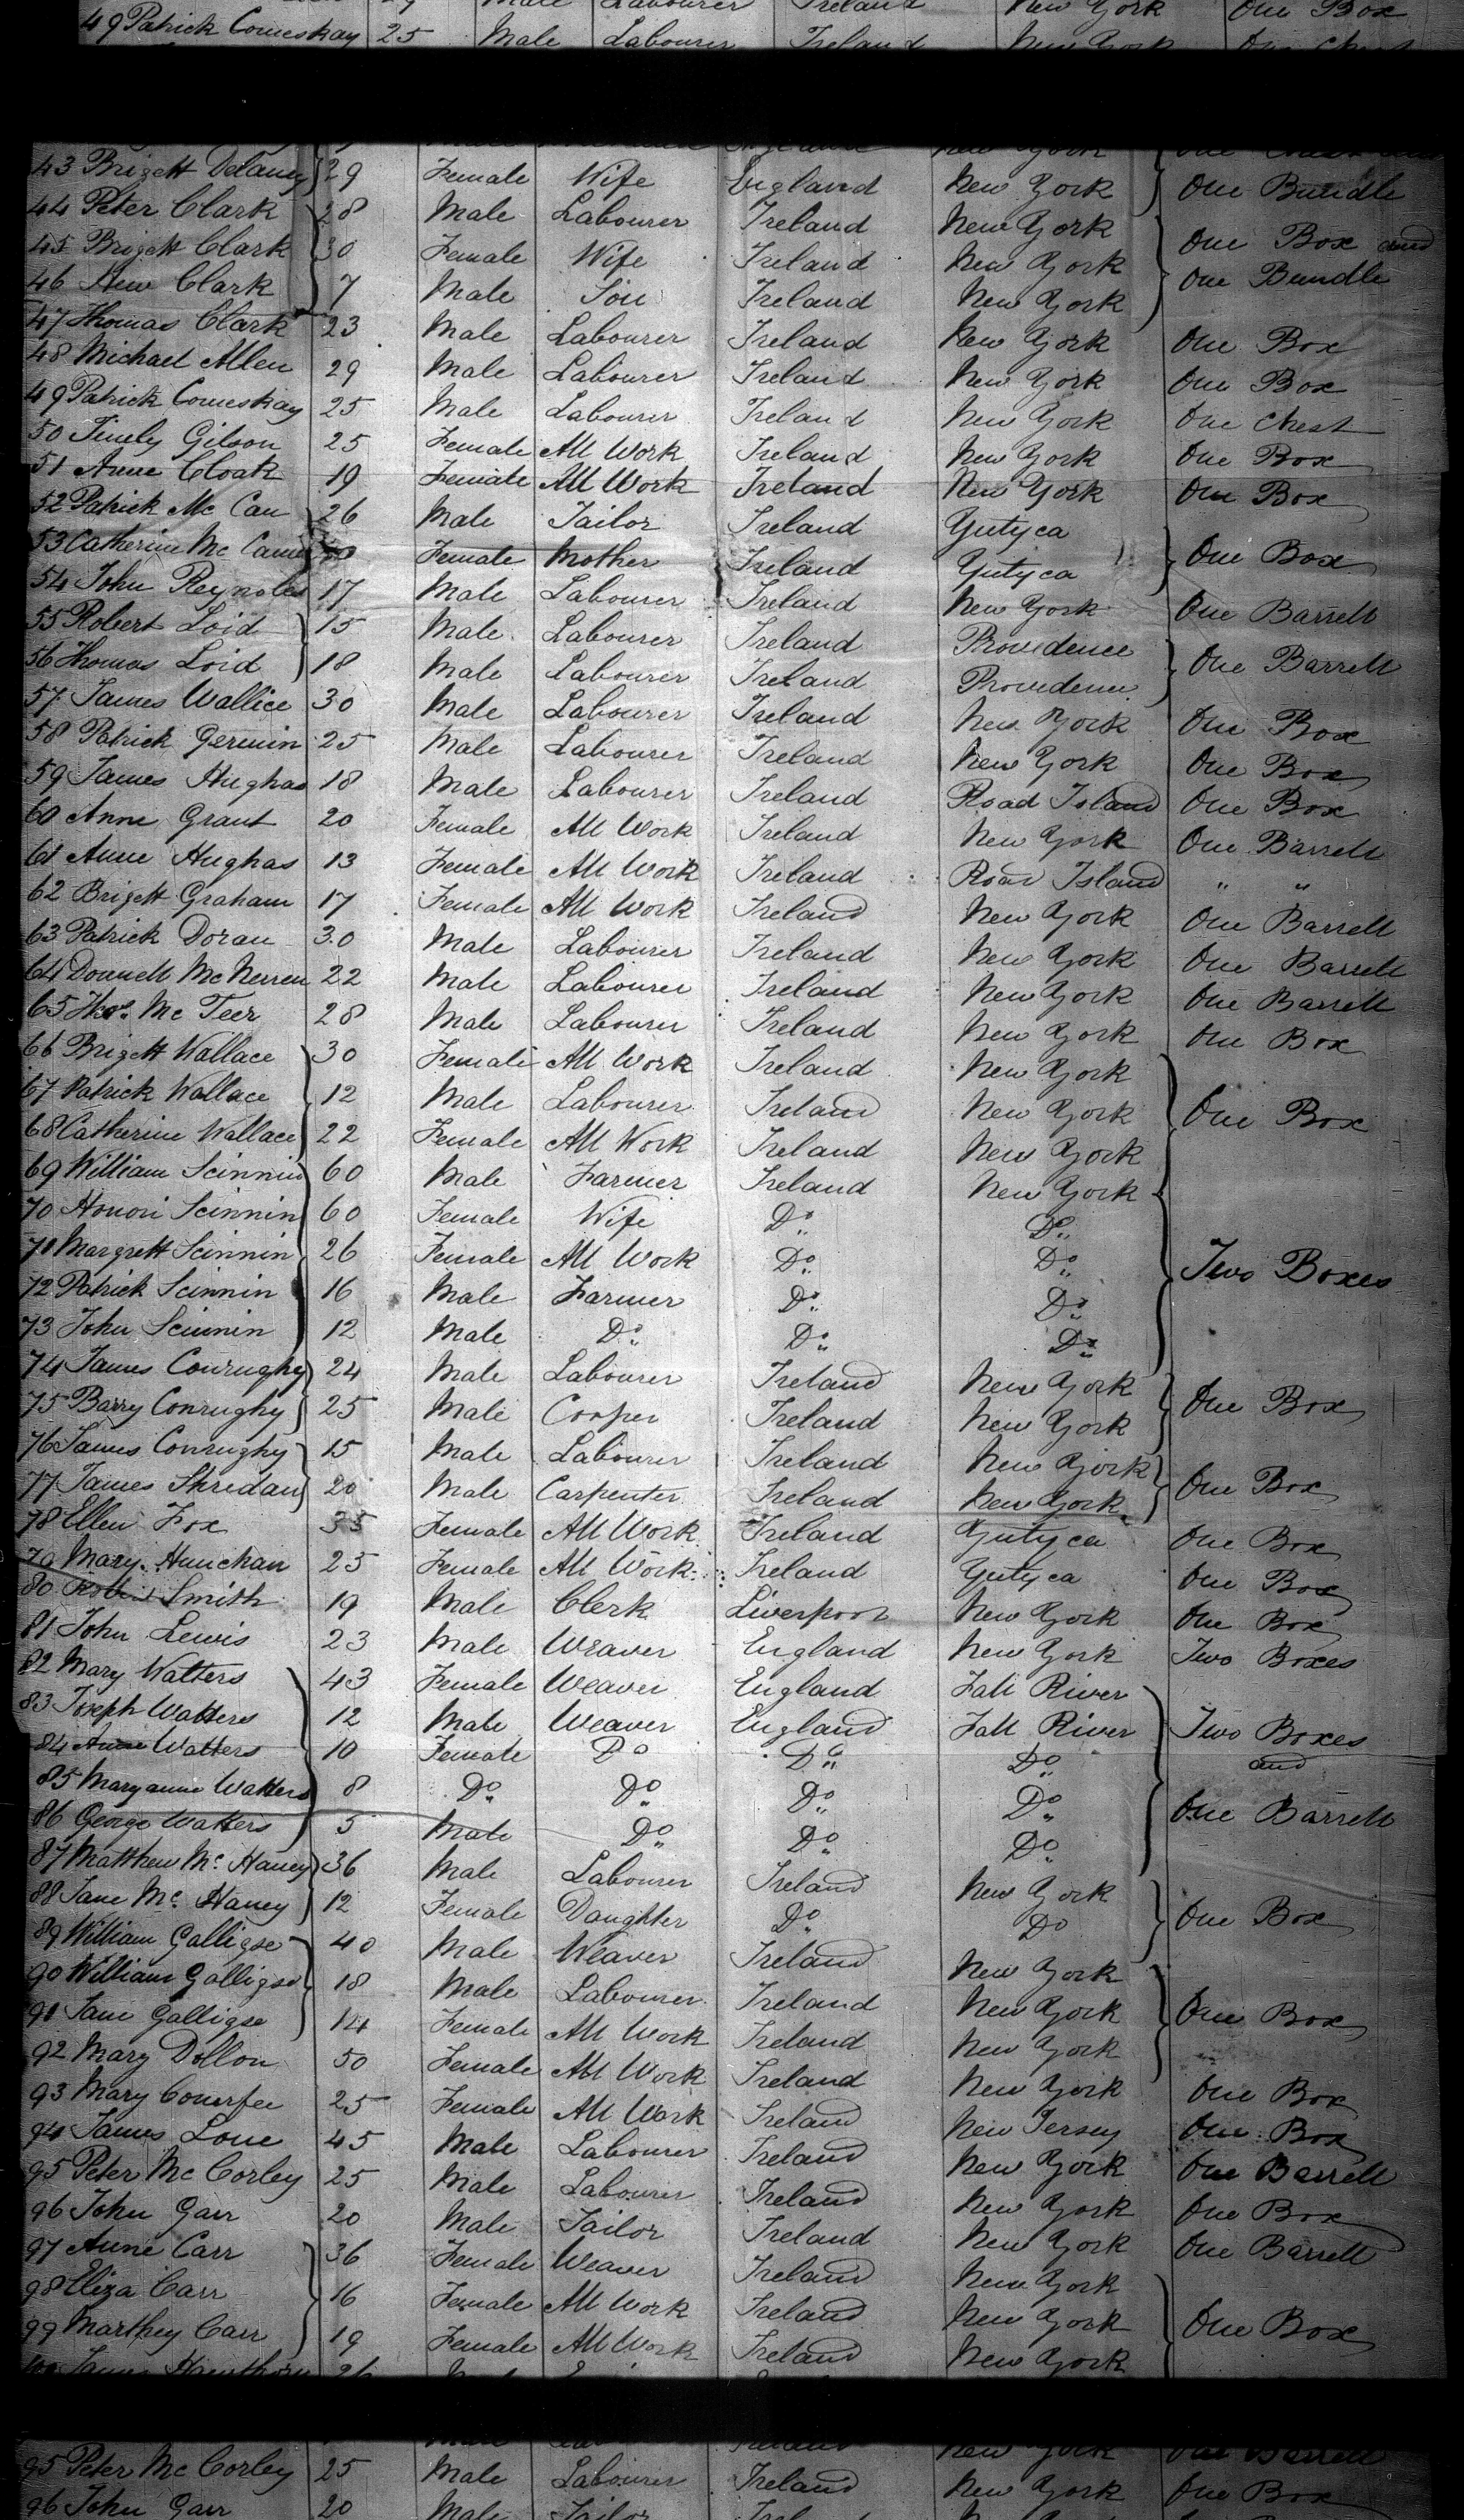 49 Patrick Comeskay 25 Male Labourer Ireland New York One Chest
43 Brigett Delaney 29 Female Wife England New York One Bundle
44 Peter Clark 28 Male Labourer Ireland New York
45 Brigett Clark 30 Female Wife Ireland New York One Box and
46 Hew Clark 7 Male Son Ireland New York One Bundle
47 Thomas Clark 23 Male Labourer Ireland New York One Box
48 Michael Allen 29 Male Labourer Ireland New York One Box
49 Patrick Comeskay 25 Male Labourer Ireland New York One Chest
50 Gibson 25 Female All Work Ireland New York One Box
51 Anne Cloak 19 Female All Work Ireland New York One Box
52 Patrick Mc Can 26 Male Tailor Ireland Yutyca
53 Catherine Mc Cann Female Mother Ireland Yutyca One Box
54 John Reynolds 17 Male Labourer Ireland New York One Barrell
55 Robert Loid 15 Male Labourer Ireland Providence
56 Thomas Loid 18 Male Labourer Ireland Providence One Barrell
57 James Wallice 30 Male Labourer Ireland New York One Box
58 Patrick Germin 25 Male Labourer Ireland New York One Box
59 James Hughas 18 Male Labourer Ireland Road Island One Box
60 Anne Grant 20 Female All Work Ireland New York One Barrell
61 Anne Hughas 13 Female All Work Ireland Road Island " "
62 Brigett Graham 17 Female All Work Ireland New York One Barrell
63 Patrick Doran 30 Male Labourer Ireland New York One Barrell
64 Donnell McNerren 22 Male Labourer Ireland New York One Barrell
65 Thos. Mc Teer 28 Male Labourer Ireland New York One Box
66 Brigett Wallace 30 Female All Work Ireland New York
67 Patrick Wallace 12 Male Labourer Ireland New York One Box
68 Catherine Wallace 22 Female All Work Ireland New York
69 William Scinnin 60 Male Farmer Ireland New York
70 Honori Scinnin 60 Female Wife Do Do
71 Margrett Scinnin 26 Female All Work Do Do Two Boxes
72 Patrick Scinnin 16 Male Farmer Do Do
73 John Scinnin 12 Male Do Do Do
74 James Conrughy 24 Male Labourer Ireland New York
75 Barry Conrughy 25 Male Cooper Ireland New York One Box
76 James Conrughy 15 Male Labourer Ireland New York
77 James Shredan 20 Male Carpenter Ireland New York One Box
78 Ellen Fox 35 Female All Work Ireland Yutyca One Box
79 Mary Hunchan 25 Female All Work Ireland Yutyca One Box
80 Smith 19 Male Clerk Liverpool New York One Box
81 John Lewis 23 Male Weaver England New York Two Boxes
82 Mary Watters 43 Female Weaver England Fall River
83 Joseph Watters 12 Male Weaver England Fall River Two Boxes
84 Anne Watters 10 Female Do Do Do and
85 Maryanne Watters 8 Do Do Do Do One Barrell
86 George Watters 5 Male Do Do Do
87 Matthew Mc Haney 36 Male Labourer Ireland New York
88 Jane Mc Haney 12 Female Daughter Do Do One Box
89 William Galligse 40 Male Weaver Ireland New York
90 William Galligse 18 Male Labourer Ireland New York One Box
91 Jane Galligse 14 Female All Work Ireland New York
92 Mary Dollon 50 Female All Work Ireland New York One Box
93 Mary 25 Female All Work Ireland New Jersey One Box
94 James Loue 45 Male Labourer Ireland New York One Barrell
95 Peter Mc Corley 25 Male Labourer Ireland New York One Box
96 John Garr 20 Male Tailor Ireland New York One Barrell
97 Anne Carr 36 Female Weaver Ireland New York
98 Eliza Carr 16 Female All Work Ireland New York One Box
99 Marthey Carr 19 Female All Work Ireland New York
100 James Hawthorn 26
95 Peter Mc Corley 25 Male Labourer Ireland New York One Box
96 John Garr 20 Male Tailor